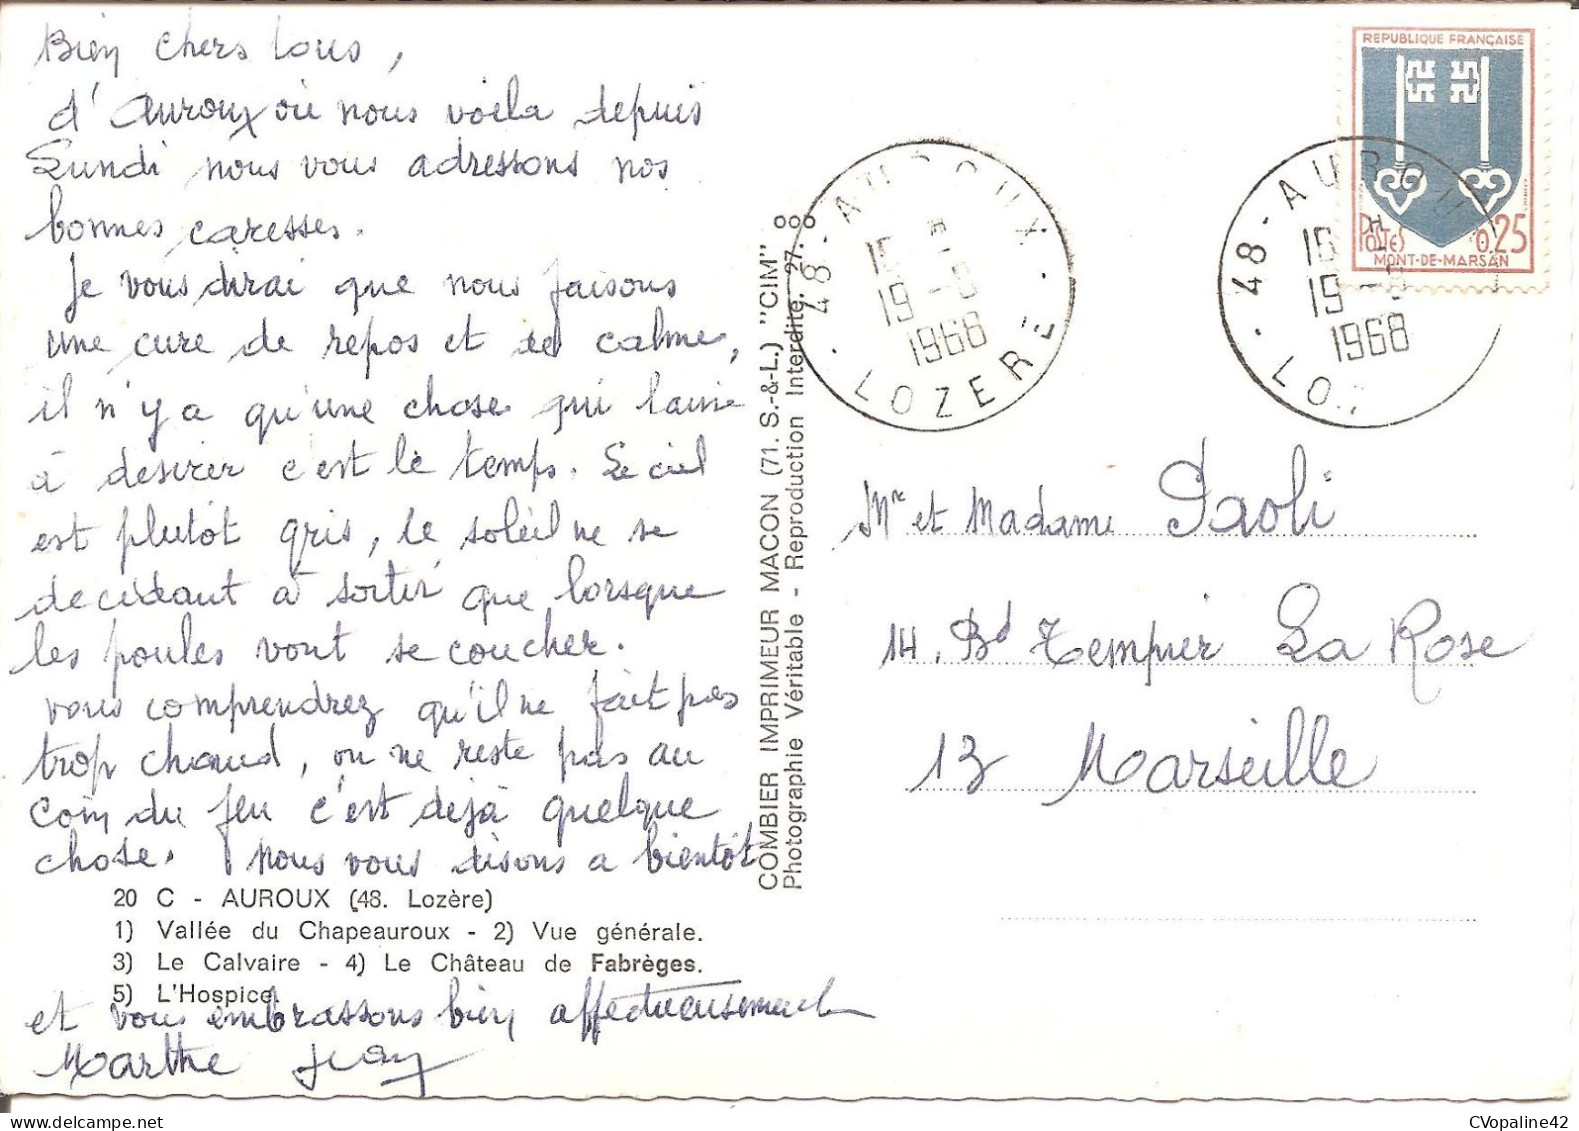 Bien chers tous,
d'Auroux où nous voila depuis
Lundi nous vous adressons nos
bonnes caresses.
Je vous dirai que nous faisons
une cure de repos et de calme,
il n'y a qu'une chose qui laisse
à desirer c'est le temps. Le ciel
est plutôt gris, le soleil ne se
decidant à sortir que lorsque
les poules vont se coucher.
vous comprendrez qu'il ne fait pas
trop chaud, on ne reste pas au
coin du feu c'est dejà quelque
chose. Nous vous disons a bientôt
20 C - AUROUX (48. Lozère)
1) Vallée du Chapeauroux - 2) Vue générale.
3) Le Calvaire - 4) Le Château de Fabrèges.
5) L'Hospice.
et vous embrassons bien affectueusement
Marthe Jean
COMBIER IMPRIMEUR MACON (71. S.-&-L.) "CIM"
Photographie Véritable - Reproduction Interdite. 27.
48 - AUROUX
19 -8
1968
LOZERE
REPUBLIQUE FRANÇAISE
POSTES 0,25
MONT-DE-MARSAN
48 - AUROU
16 H
19 -8
1968
LOZ
Mr et Madame Paoli
14, Bd Tempier La Rose
13 Marseille
CVopaline42